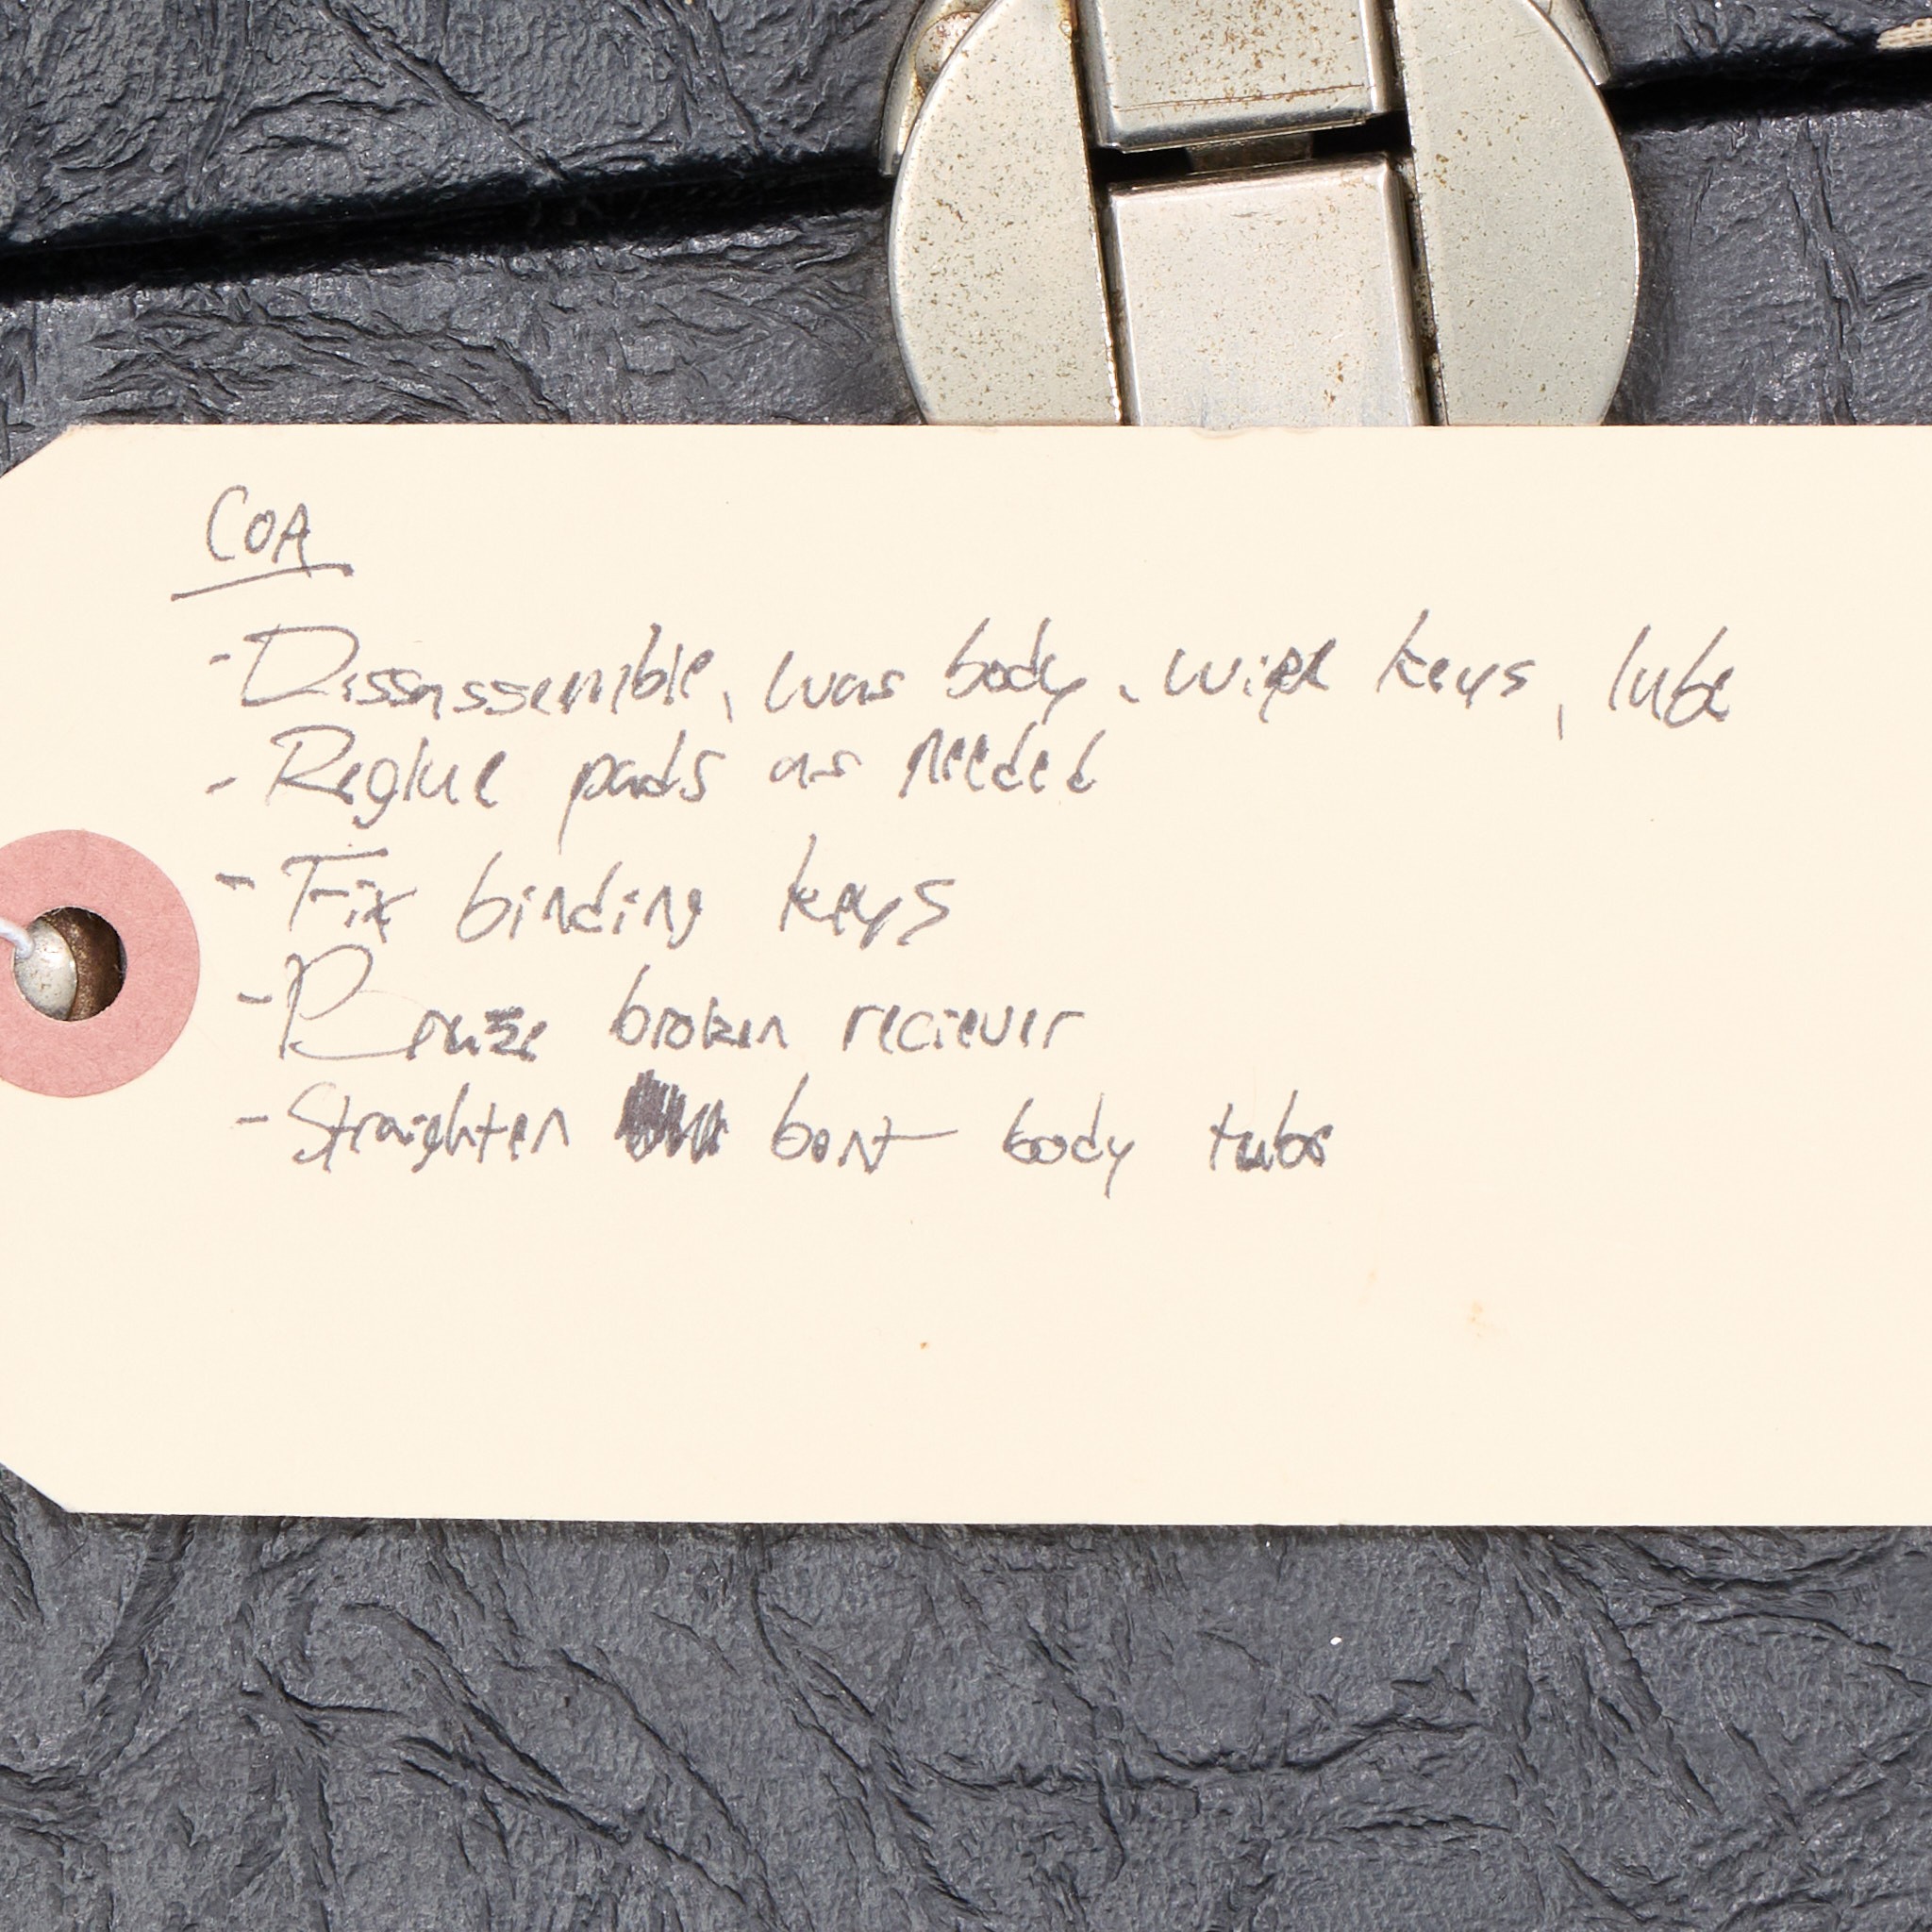 COA
- Dissassemble, was body, wipe keys, lube
- Reglue pads as needed
- Fix binding keys
- Braze broken reciever
- Straighten bent body tube